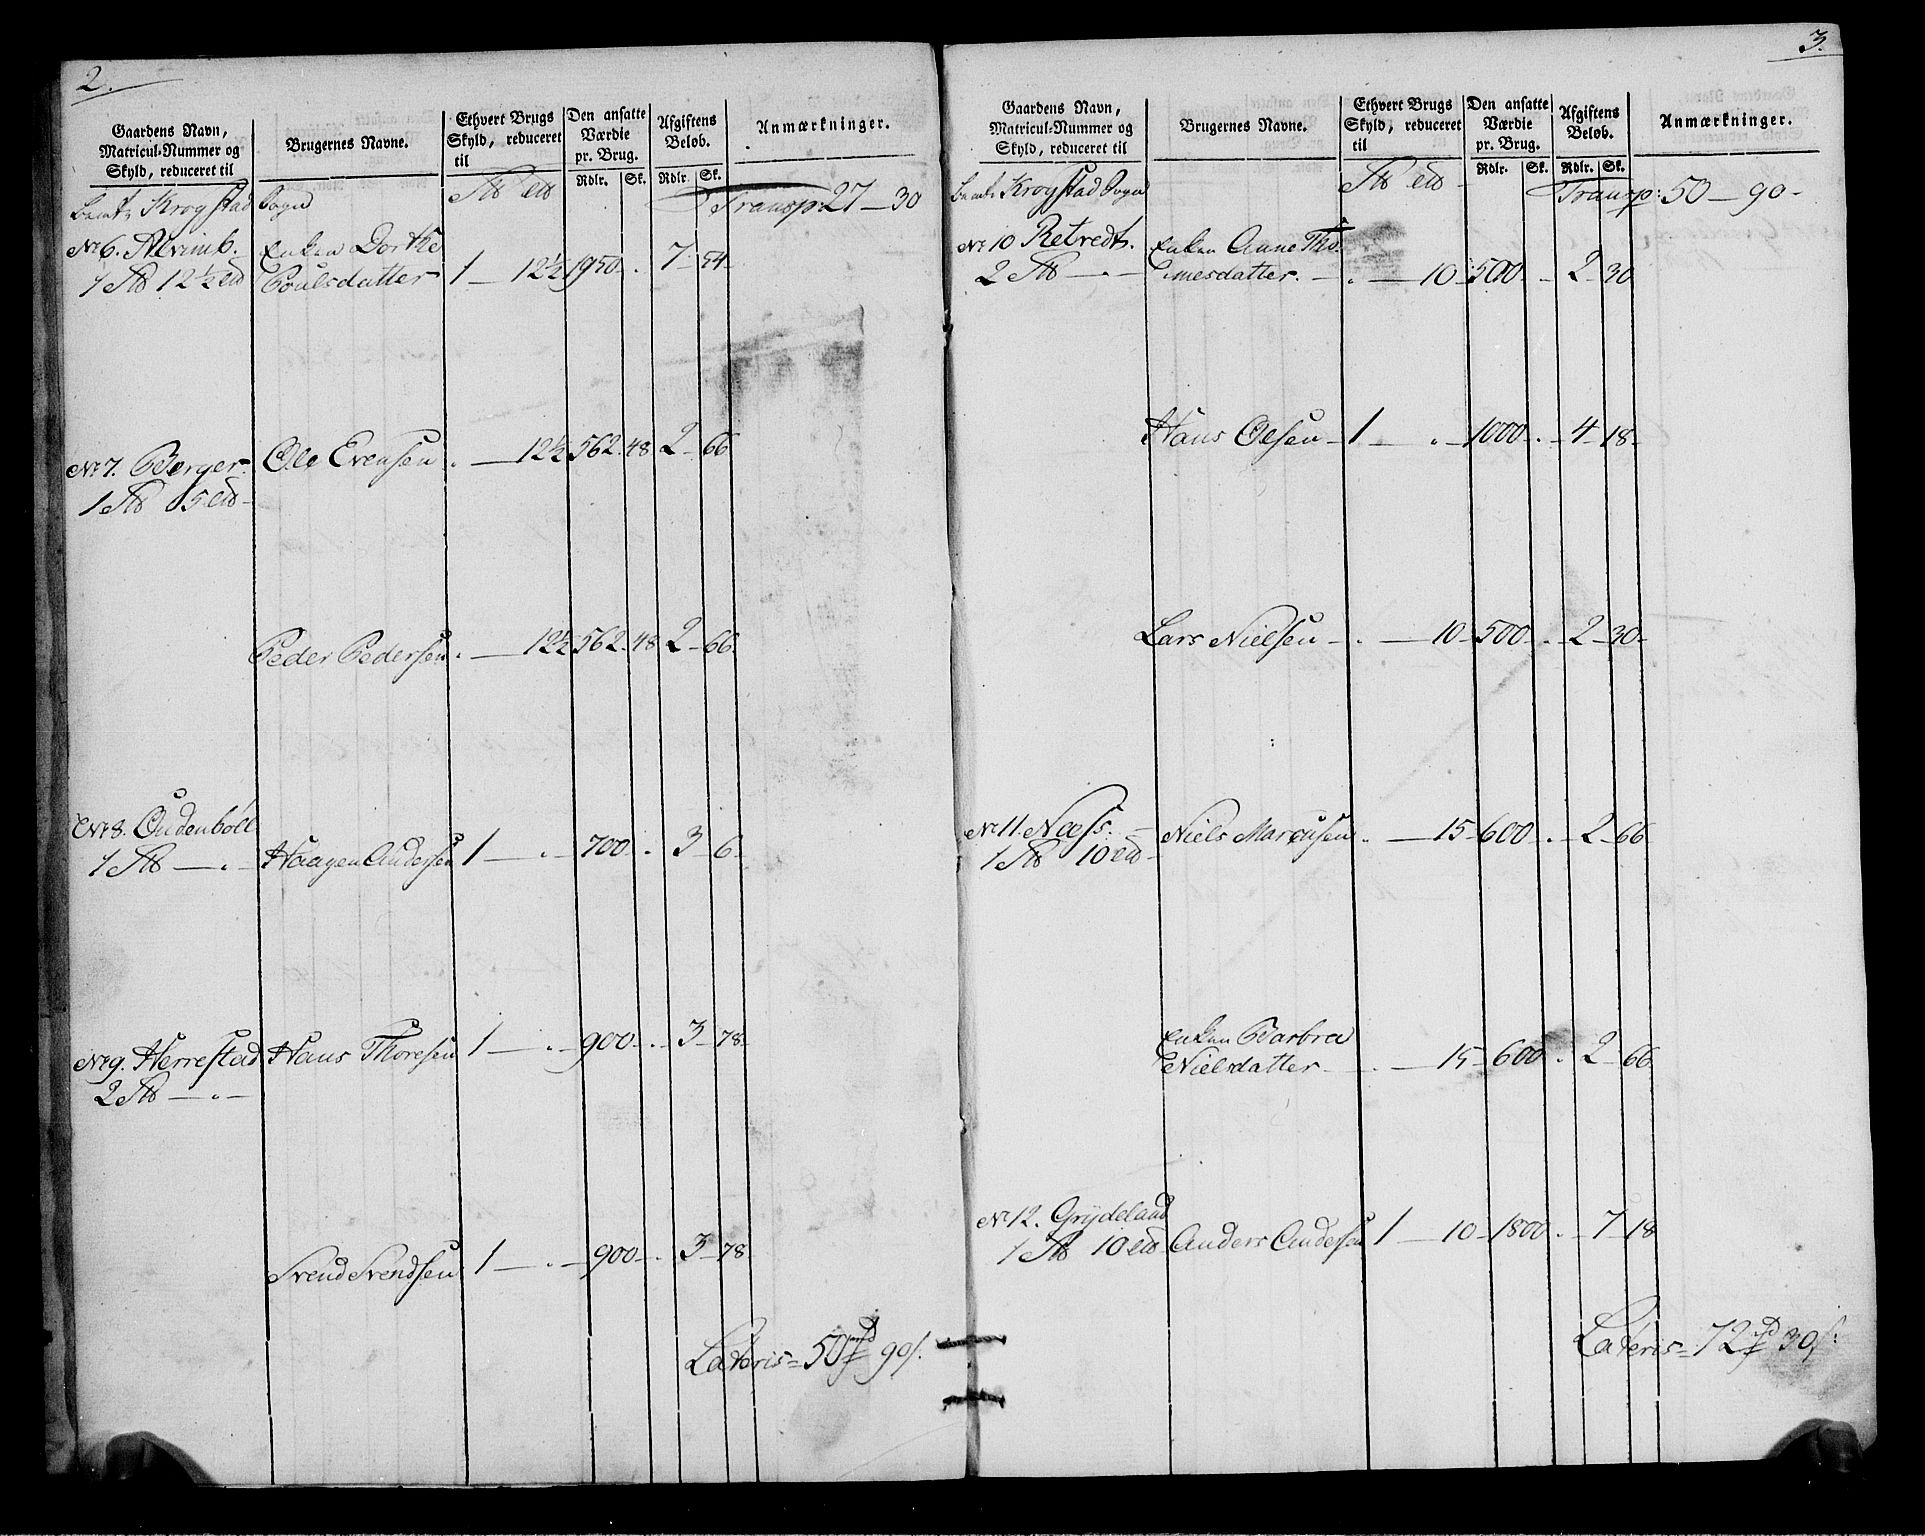 2.
Gaardens Navn, Matricul-Nummer og Skyld, reduceret til | Brugernes Navne. | Ethvert Brugs Skyld, reduceret til | Den ansatte Værdie pr. Brug. | Afgiftens Beløb. | Anmærkninger.
Rdlr. | Sk. | Rdlr. | Sk.
Krogstad Sogn Transp: 27 — 30
No 6. Alvimb. Enken Dorthe
1 12½ Poulsdatter 1 — 12½ 1950 . 7 — 54
No 7. Berger. Ole Evensen . — 12½ 562. 48 2 — 66
1 5
Peder Pedersen . — 12½ 562. 48 2 — 66
No 8. Oudenböll
1 — . — Haagen Andersen 1 — . — 700 . 3 — 6
No 9. Herrestad Hans Thoresen 1 — . — 900 . 3 — 78
2 — . —
Svend Svendsen 1 — . — 900 . 3 — 78
Lateris = 50 90
3.
Gaardens Navn, Matricul-Nummer og Skyld, reduceret til | Brugernes Navne. | Ethvert Brugs Skyld, reduceret til | Den ansatte Værdie pr. Brug. | Afgiftens Beløb. | Anmærkninger.
Rdlr. | Sk. | Rdlr. | Sk.
Krogstad Sogn Transp: 50 — 90
No 10 Retvedt. Enken Anne Tho-
2 — . — mesdatter . — 10 — 500 . 2 — 30
Hans Olsen 1 — . — 1000 . 4 — 18
Lars Nielsen . — 10 — 500 . 2 — 30
No 11. Næss. Niels Marcusen . — 15 — 600 . 2 — 66
1 10
Enken Barbra
Nielsdatter . — 15 — 600 . 2 — 66
No 12. Grÿdeland
1 10 Anders Andersen 1 — 10 — 1800 . 7 — 18
Lateris = 72 30